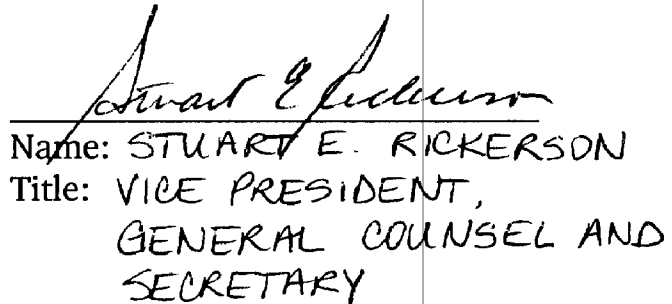 Stuart E Rickerson
Name: STUART E. RICKERSON
Title: VICE PRESIDENT,
GENERAL COUNSEL AND
SECRETARY